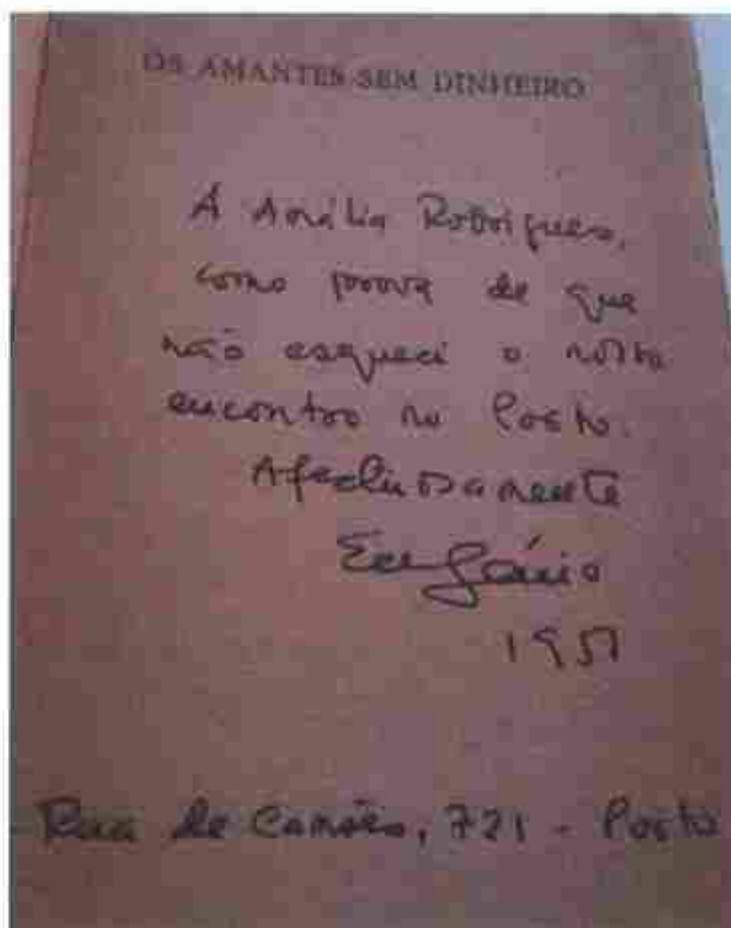 OS AMANTES SEM DINHEIRO
À Amália Rodrigues,
como prova de que
não esqueci o nosso
encontro no Porto.
Afectuosamente
Eugénio
1951
Rua de Camões, 721 - Porto